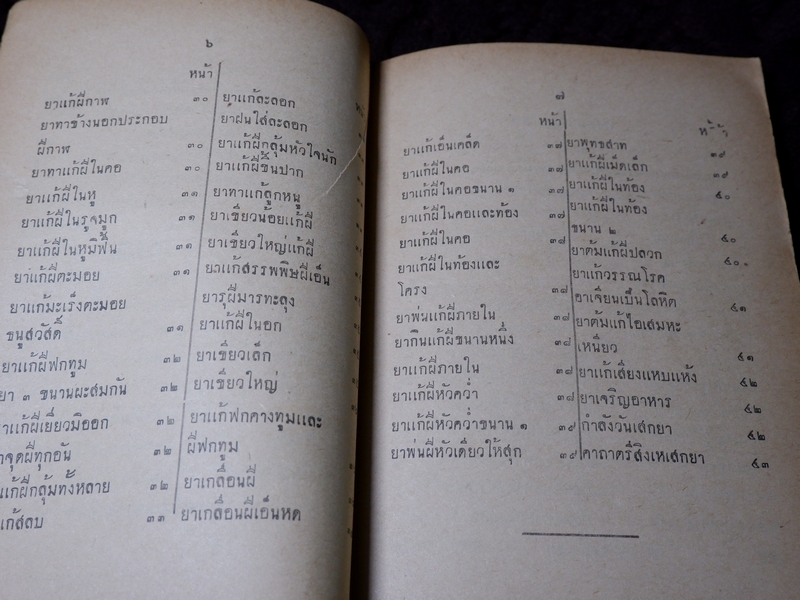 ๖
หน้า
ยาแก้ผีกาฬ ๓๐
ยาทาข้างนอกประกอบ
ผีกาฬ ๓๐
ยาทาแก้ผีในคอ ๓๐
ยาแก้ผีในหู ๓๑
ยาแก้ผีในรูจมูก ๓๑
ยาแก้ผีในหูมิฟื้น ๓๑
ยาแก้ผีตะมอย ๓๑
ยาแก้มะเร็งตะมอย
ขนูสวัสดิ์ ๓๑
ยาแก้ผีฟกทูม ๓๒
ยา ๓ ขนานผะสมกัน ๓๒
ยาแก้ผีเยี่ยวมิออก ๓๒
จุดผีทุกอัน
แก้ผีกลุ้มทั้งหลาย ๓๒
แก้สลบ ๓๓
ยาแก้สะลอก
ยาฝนใส่สะลอก
ยาแก้ผีกลุ้มหัวใจนัก
ยาแก้ผีขึ้นปาก
ยาทาแก้ลูกหนู
ยาเขียวน้อยแก้ผี
ยาเขียวใหญ่แก้ผี
ยาแก้สรรพพิษผีเอ็น
ยารุผีมารทะลุง
ยาแก้ผีในอก
ยาเขียวเล็ก
ยาเขียวใหญ่
ยาแก้ฟกคางทูมและ
ผีฟกทูม
ยาเกลื่อนผี
ยาเกลื่อนผีเอ็นหด
๗
หน้า
ยาแก้เอ็นเคล็ด ๓๗
ยาแก้ผีในคอ ๓๗
ยาแก้ผีในคอขนาน ๑ ๓๗
ยาแก้ผีในคอและท้อง ๓๗
ยาแก้ผีในคอ ๓๘
ยาแก้ผีในท้องและ
โครง ๓๘
ยาพ่นแก้ผีภายใน ๓๘
ยากินแก้ผีขนานหนึ่ง ๓๘
ยาแก้ผีภายใน ๓๘
ยาแก้ผีหัวคว่ำ ๓๘
ยาแก้ผีหัวคว่ำขนาน ๑ ๓๙
ยาพ่นผีหัวเดียวให้สุก ๓๙
หน้า
ยาพุทธสาท ๓๙
ยาแก้ผีเม็ดเล็ก ๓๙
ยาแก้ผีในท้อง ๔๐
ยาแก้ผีในท้อง
ขนาน ๒ ๔๐
ยาต้มแก้ผีปลวก ๔๐
ยาแก้วรรณโรค
อาเจียนเป็นโลหิต ๔๑
ยาต้มแก้ไอเสมหะ
เหนียว ๔๑
ยาแก้เสียงแหบแห้ง ๔๒
ยาเจริญอาหาร ๔๒
กำลังวันเสกยา ๔๒
คาถาตรีสิงเหเสกยา ๔๓